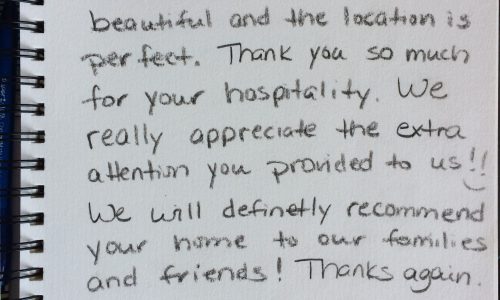 beautiful and the location is
perfect. Thank you so much
for your hospitality. We
really appreciate the extra
attention you provided to us!!
We will definetly recommend
your home to our families
and friends! Thanks again.